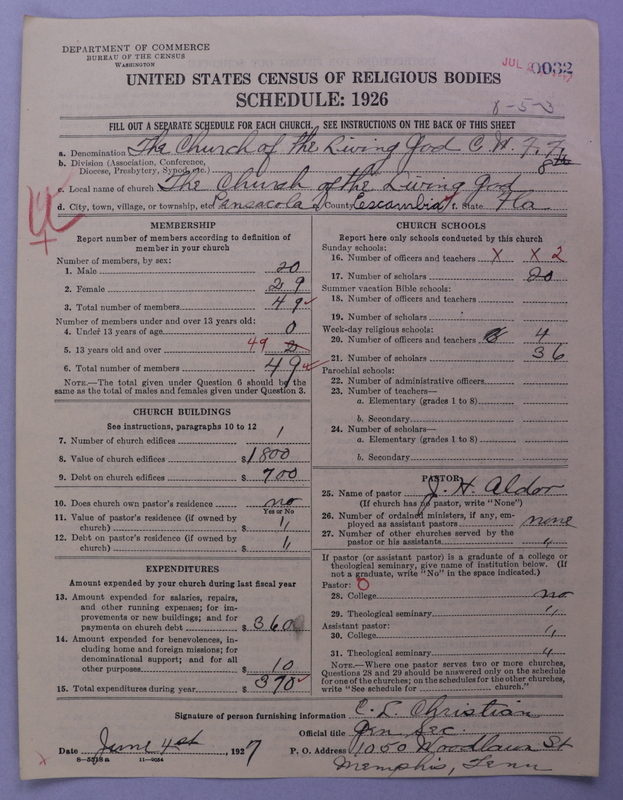 DEPARTMENT OF COMMERCE
BUREAU OF THE CENSUS
WASHINGTON
JUL 0032
UNITED STATES CENSUS OF RELIGIOUS BODIES
SCHEDULE: 1926
8-5-3
FILL OUT A SEPARATE SCHEDULE FOR EACH CHURCH. SEE INSTRUCTIONS ON THE BACK OF THIS SHEET
a. Denomination The Church of the Living God C. W. F. F.
b. Division (Association, Conference,
Diocese, Presbytery, Synod, etc.)
c. Local name of church The Church of the Living God
d. City, town, village, or township, etc. Pensacola e. County Escambia f. State Fla
MEMBERSHIP
Report number of members according to definition of
member in your church
Number of members, by sex:
1. Male 20
2. Female 29
3. Total number of members 49
Number of members under and over 13 years old:
4. Under 13 years of age 0
5. 13 years old and over 49
6. Total number of members 49
NOTE.—The total given under Question 6 should be the
same as the total of males and females given under Question 3.
CHURCH BUILDINGS
See instructions, paragraphs 10 to 12
7. Number of church edifices 1
8. Value of church edifices $1800
9. Debt on church edifices $700
10. Does church own pastor's residence no
Yes or No
11. Value of pastor's residence (if owned by
church) $ "
12. Debt on pastor's residence (if owned by
church) $ "
EXPENDITURES
Amount expended by your church during last fiscal year
13. Amount expended for salaries, repairs,
and other running expenses; for im-
provements or new buildings; and for
payments on church debt $360
14. Amount expended for benevolences, in-
cluding home and foreign missions; for
denominational support; and for all
other purposes $10
15. Total expenditures during year $370
CHURCH SCHOOLS
Report here only schools conducted by this church
Sunday schools:
16. Number of officers and teachers X X 2
17. Number of scholars 20
Summer vacation Bible schools:
18. Number of officers and teachers
19. Number of scholars
Week-day religious schools:
20. Number of officers and teachers 4
21. Number of scholars 36
Parochial schools:
22. Number of administrative officers
23. Number of teachers—
a. Elementary (grades 1 to 8)
b. Secondary
24. Number of scholars—
a. Elementary (grades 1 to 8)
b. Secondary $
PASTOR
25. Name of pastor J. H. Aldor
(If church has no pastor, write "None")
26. Number of ordained ministers, if any, em-
ployed as assistant pastors none
27. Number of other churches served by the
pastor or his assistants "
If pastor (or assistant pastor) is a graduate of a college or
theological seminary, give name of institution below. (If
not a graduate, write "No" in the space indicated.)
Pastor: 0
28. College no
29. Theological seminary "
Assistant pastor:
30. College "
31. Theological seminary "
NOTE.—Where one pastor serves two or more churches,
Questions 28 and 29 should be answered only on the schedule
for one of the churches; on the schedules for the other churches,
write "See schedule for church."
Signature of person furnishing information C. L. Christian
Official title Gen Sec.
Date June 4st, 1927 P. O. Address 1050 Woodlawn St
8—5018a 11—9024 Memphis, Tenn